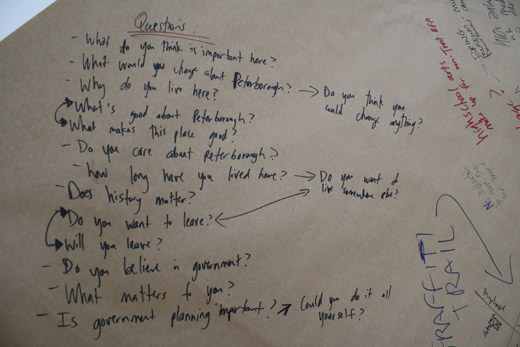 Questions
- What do you think is important here?
- What would you change about Peterborough?
- Why do you live here? → Do you think you
could change anything?
What's good about Peterborough?
What makes this place good?
- Do you care about Peterborough?
- how long have you lived here? → Do you want to
live somewhere else?
- Does history matter?
Do you want to leave?
Will you leave?
- Do you believe in government?
- What matters to you?
- Is government planning important? → Could you do it all
yourself?
GRAFFITI
TRAIL